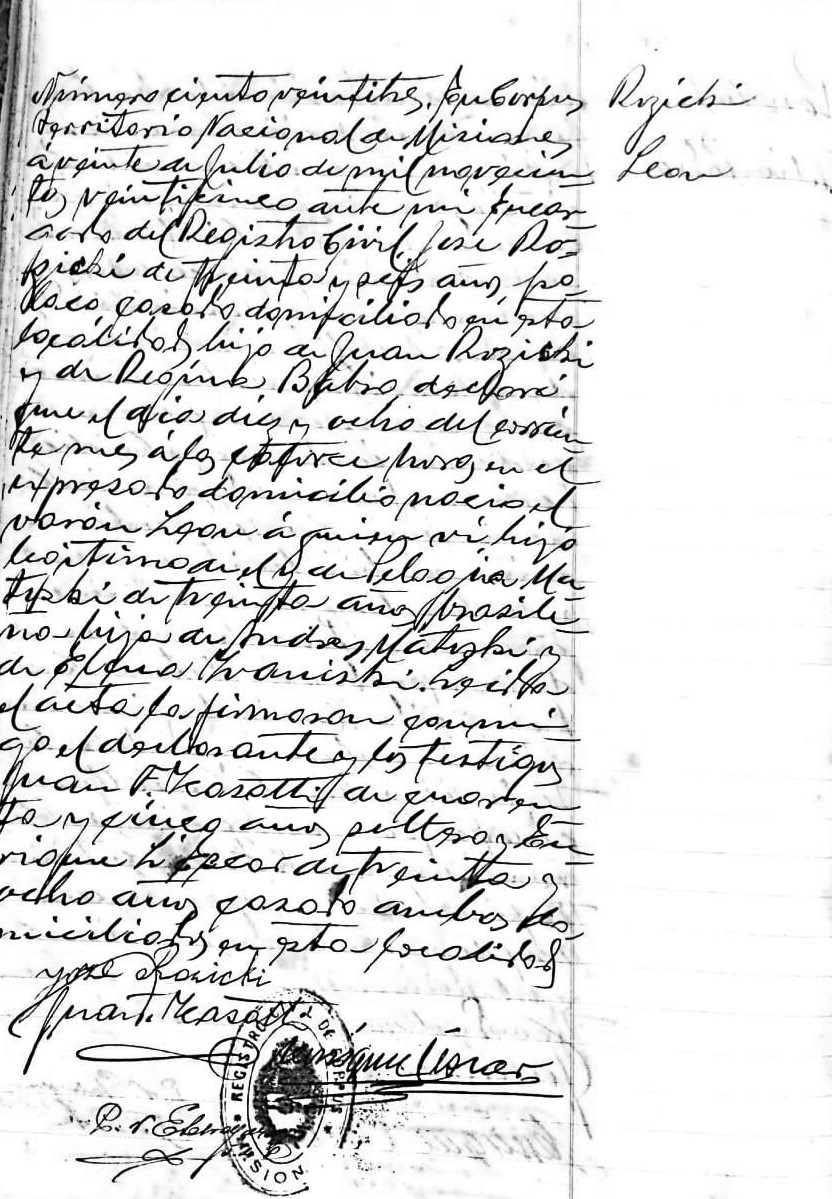 Número ciento veintitres. En Corpus
Territorio Nacional de Misiones
á veinte de Julio de mil novecien-
tos veinticinco ante mi Encar-
gado del Registro Civil, José Ro-
zicki de treinta y seis años po-
laco casado domiciliado en esta
localidad, hijo de Juan Rozicki
y de Regina declaró
que el dia diez y ocho del corrien-
te mes á las catorce horas en el
expresado domicilio nacio el
varón Leon á quien ví hijo
legitimo de el y de Pelagia Ma-
tuski de treinta años brasile-
ña hija de Andres Matuski y
de Elena Ivaniski. Leida
el acta la firmaron conmi-
go el declarante y los testigos
Juan F. de cuaren-
ta y cinco años soltero y En-
rique de treinta y
ocho años casado ambos do-
miciliados en esta localidad
José Rozicki
Juan F.
Enrique
REGISTRO DE CORPUS
MISIONES
Rozicki
Leon